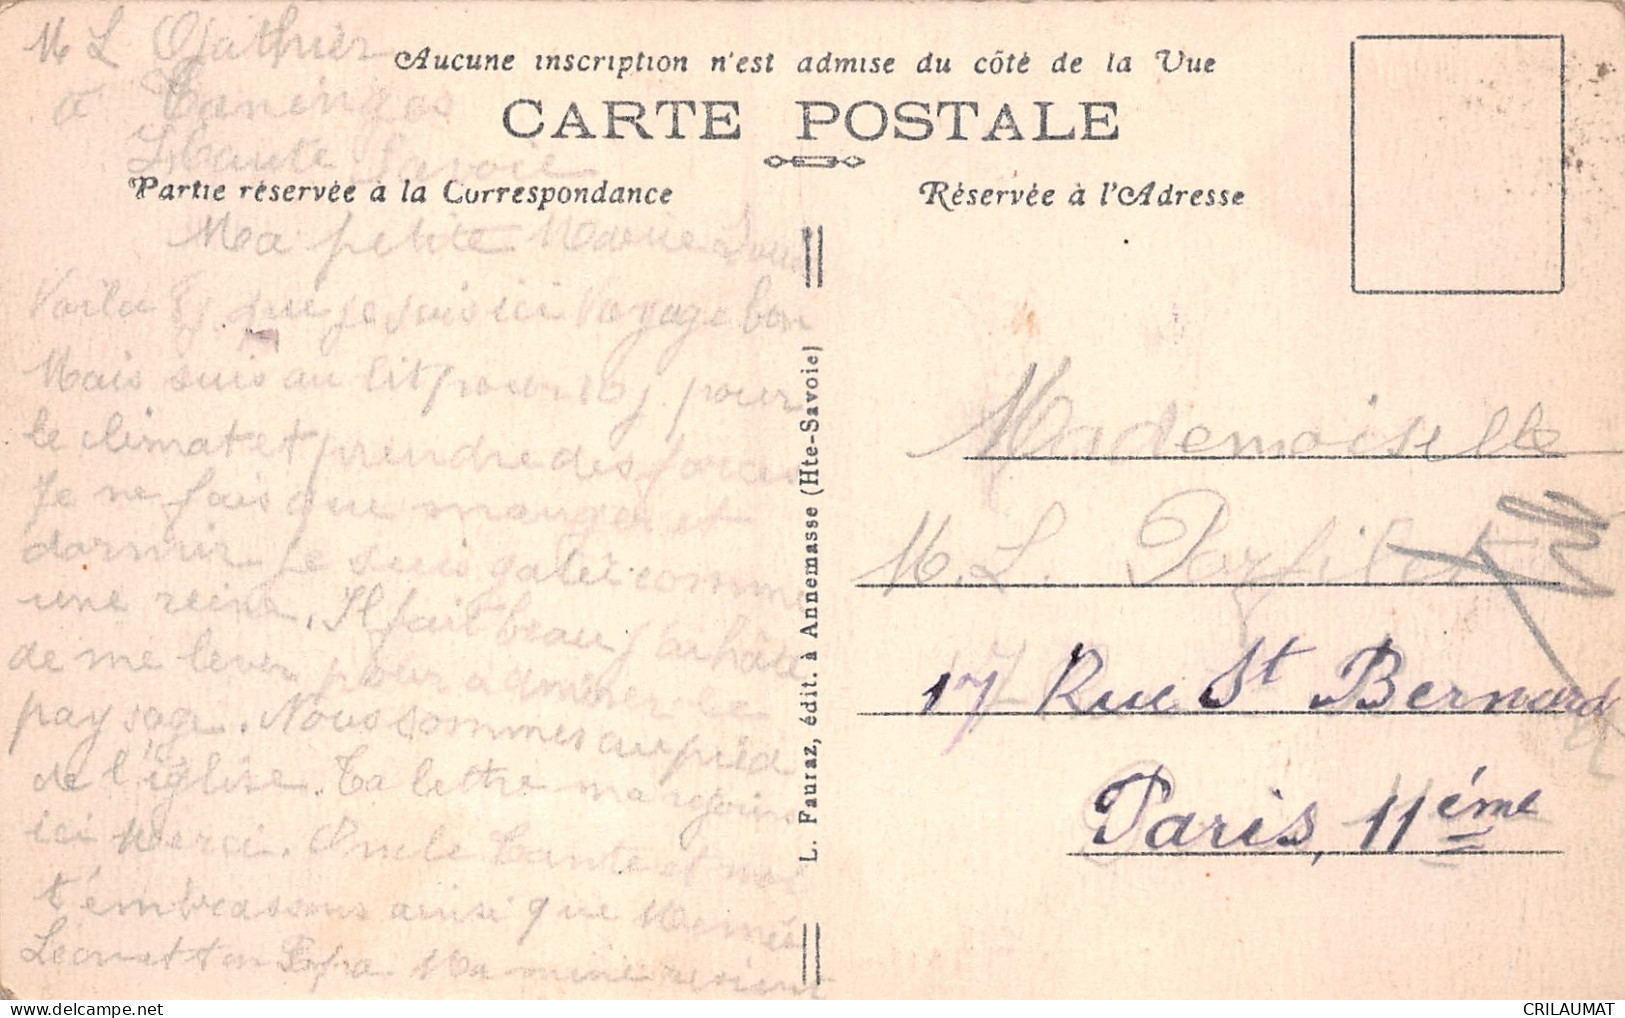 M L
à Taninges
Haute Savoie
Aucune inscription n'est admise du côté de la Vue
CARTE POSTALE
Partie réservée à la Correspondance
Ma petite Marie
Voila 8j que je suis ici Voyage bon
Mais suis au lit pour 10j. pour
le climat et prendre des forces
Je ne fais que manger et
dormir. Je suis gatée comme
une reine. Il fait beau j'ai hâte
de me lever pour admirer le
paysage. Nous sommes au pied
de l'église. Ta lettre ma rejoins
ici Merci. Oncle Tante et moi
t'embrassons ainsi que Mémée
Léon et ton Papa Ma mine revient
L. Fauraz, édit. à Annemasse (Hte-Savoie)
Réservée à l'Adresse
Mademoiselle
M. L.
17 Rue St Bernard
Paris, 11ème
CRILAUMAT